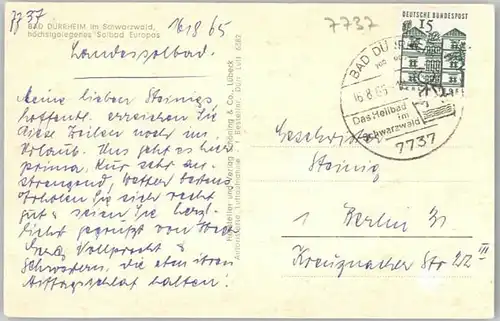 7737
BAD DÜRRHEIM im Schwarzwald,
höchstgelegenes Solbad Europas
16/8 65
Landessolbad.
Meine lieben Steinigs
hoffentl. erreichen Sie
diese Zeilen noch im
Urlaub. Uns geht es hier
prima, Kur sehr an-
strengend, Wetter bestens
Erholen Sie sich recht
gut & seien Sie herz-
lichst gegrüßt von
Vollprecht &
Schwestern, die eben ihren
Mittagsschlaf halten!
Hersteller und Verlag Schöning & Co., Lübeck
Bestellnr. Dürr Luft 6582
7737
DEUTSCHE BUNDESPOST
15
BERLIN
BAD DÜRRHEIM
16.8.65
Das Heilbad
im
Schwarzwald
7737
Geschwister
Steinig
1 Berlin 31
Kreuznacher Str 22 III